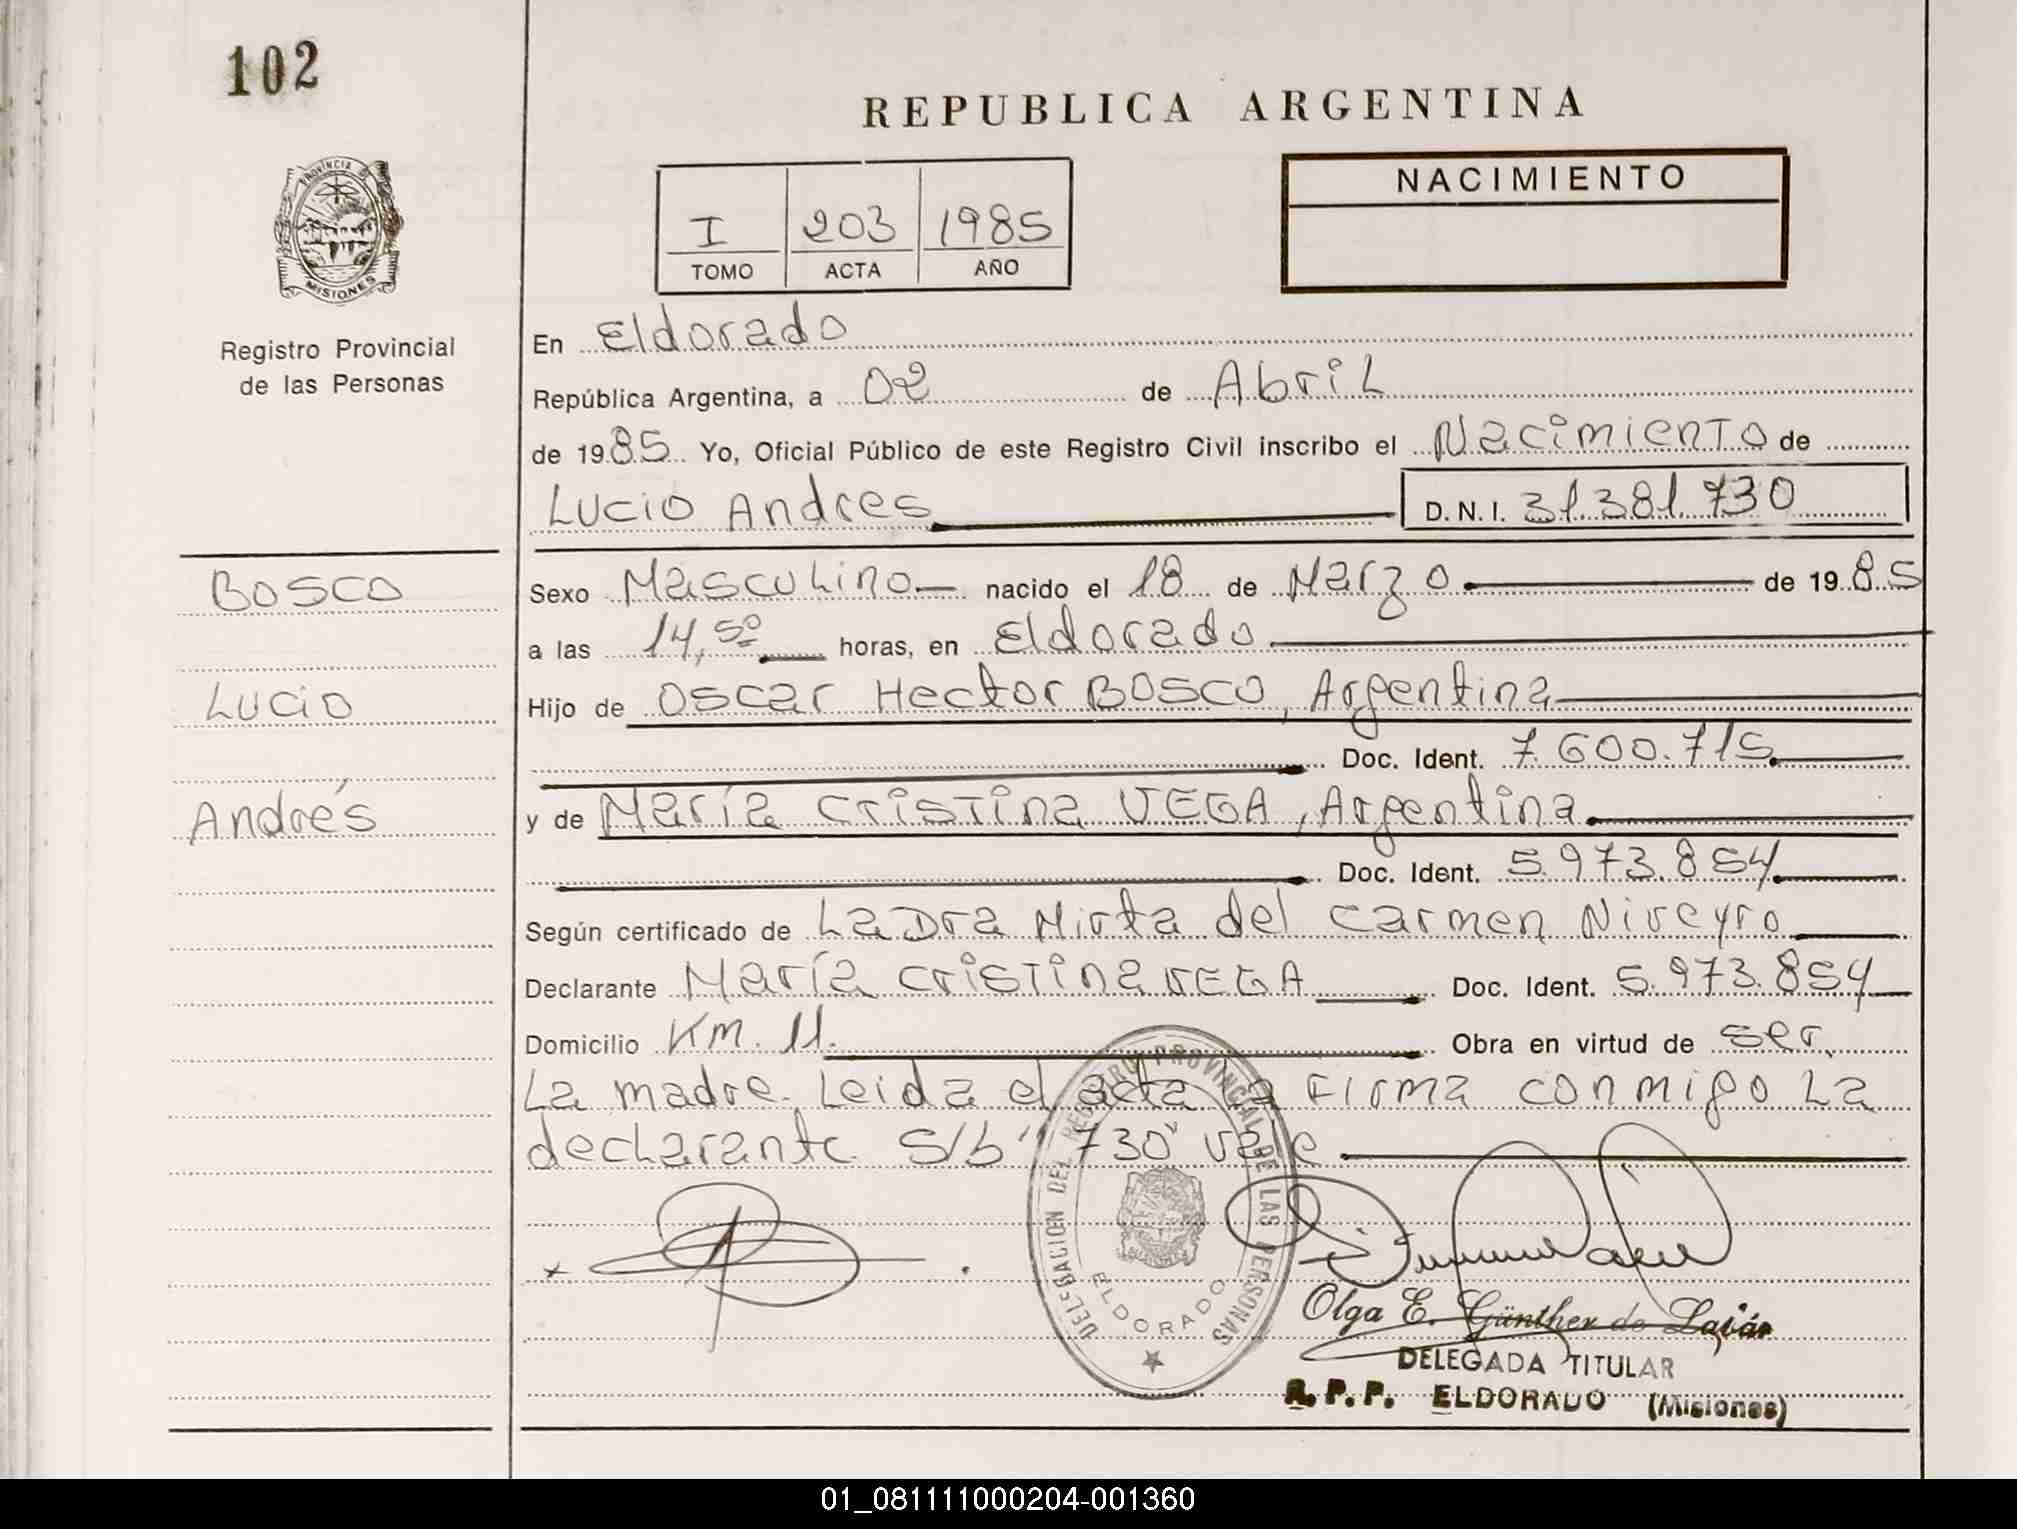 102
REPUBLICA ARGENTINA
PROVINCIA DE
MISIONES
Registro Provincial
de las Personas
I 203 1985
TOMO ACTA AÑO
NACIMIENTO
En Eldorado
República Argentina, a 02 de Abril
de 1985 Yo, Oficial Público de este Registro Civil inscribo el Nacimiento de
Lucio Andres D. N. I. 31.381.730
BOSCO
Lucio
Andrés
Sexo Masculino nacido el 18 de Marzo de 1985
a las 14,50 horas, en Eldorado
Hijo de Oscar Hector BOSCO, Argentina
Doc. Ident. 7.600.715
y de María Cristina VEGA, Argentina
Doc. Ident. 5.973.854
Según certificado de La Dra Mirta del Carmen Nireyro
Declarante María Cristina VEGA Doc. Ident. 5.973.854
Domicilio Km. 11. Obra en virtud de ser
La madre. Leida el acta la Firma conmigo La
declarante. S/b "730" vale
DELEGACION DEL REGISTRO PROVINCIAL DE LAS PERSONAS
ELDORADO
Olga E. Günther de
DELEGADA TITULAR
R. P. P. ELDORADO (Misiones)
01_081111000204-001360